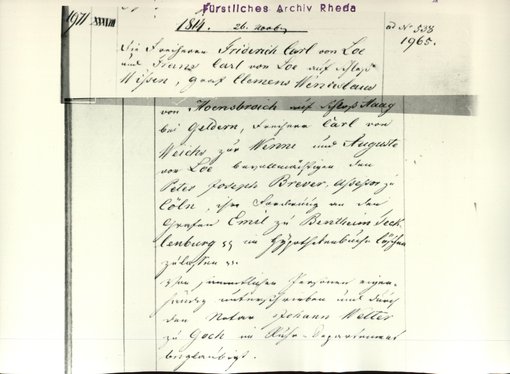 Fürstliches Archiv Rheda
1971 XXXVIII
1814. 26. Novbr
ad No 538
1965.
Die Freiherren Friderich Carl von Loe
und Franz Carl von Loe auf Schloß
Wissen, Graf Clemens Wenceslaus
von Hoensbroich auf Schloß Haag
bei Geldern, Freiherr Carl von
Weichs zur Wenne und Auguste
von Loe bevollmächtigen den
Peter Joseph Brever, Assessor zu
Cöln, ihre Forderung an den
Grafen Emil zu Bentheim Teck-
lenburg im Hypothekenbuche löschen
zu lassen
sämmtlichen Personen eigen-
händig unterschrieben und durch
den Notar Johann Welter
zu Goch im Ruhr-Departement
beglaubigt.